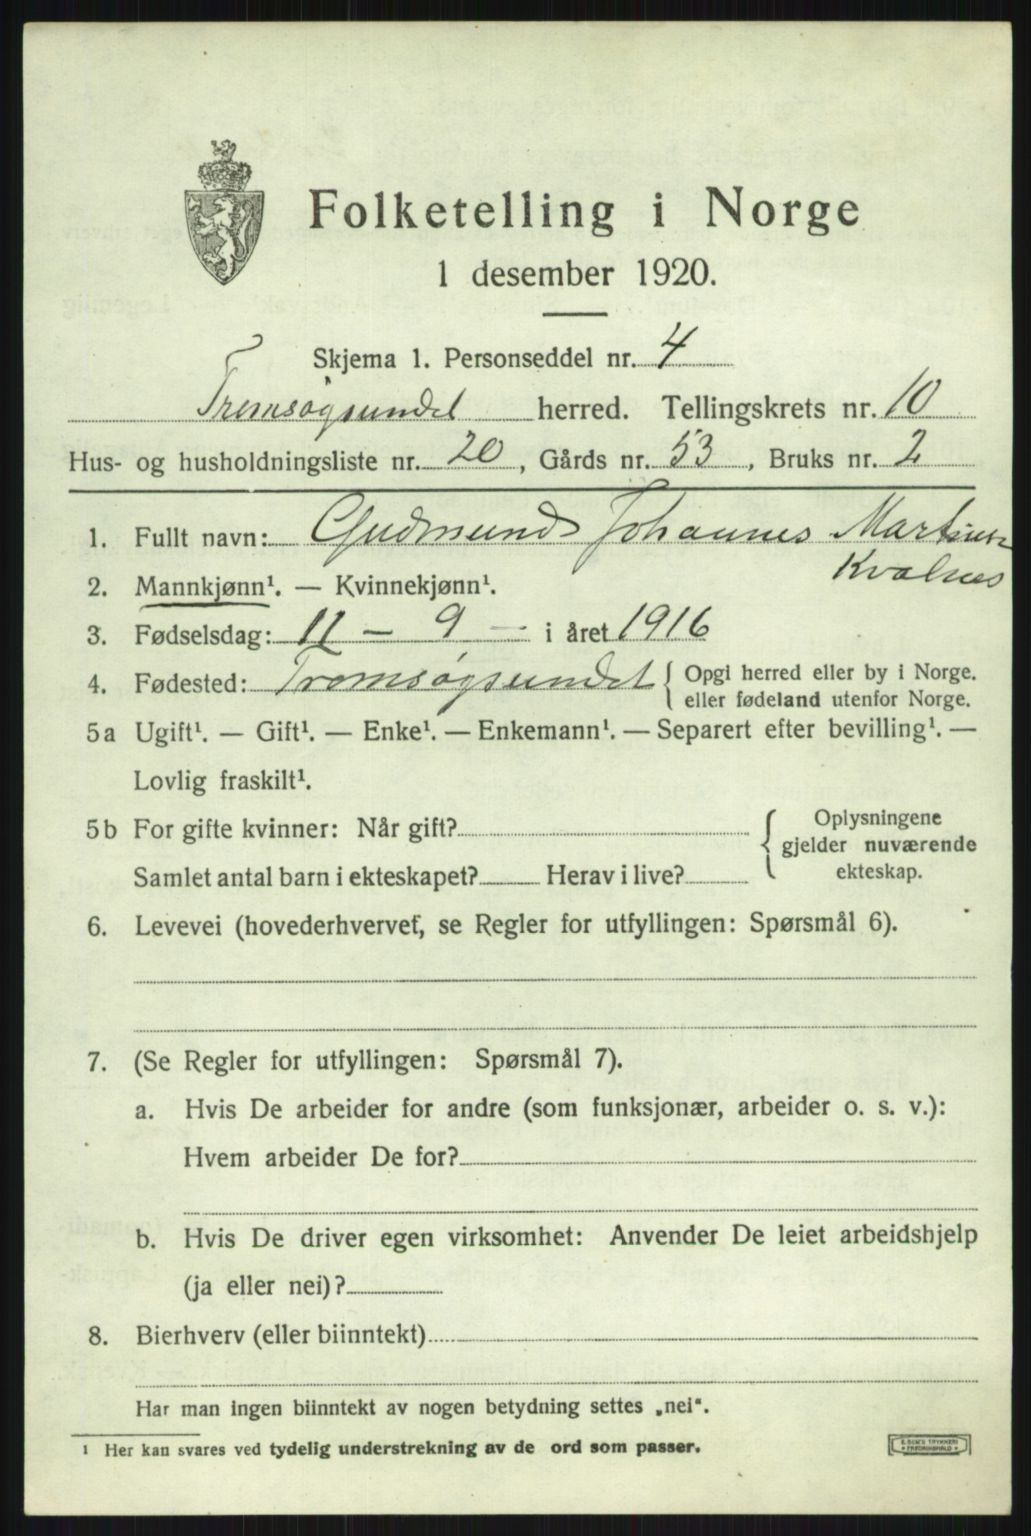 Folketelling i Norge
1 desember 1920.
Skjema 1. Personseddel nr. 4
Tromsøysundet herred. Tellingskrets nr. 10
Hus- og husholdningsliste nr. 20, Gårds nr. 53, Bruks nr. 2
1. Fullt navn: Gudmund Johannes Martin
Kvalnes
2. Mannkjønn¹. — Kvinnekjønn¹.
3. Fødselsdag: 11 - 9 - i året 1916
4. Fødested: Tromsøysundet { Opgi herred eller by i Norge.
eller fødeland utenfor Norge.
5a Ugift¹. — Gift¹. — Enke¹. — Enkemann¹. — Separert efter bevilling¹. —
Lovlig fraskilt¹.
5b For gifte kvinner: Når gift?
Samlet antal barn i ekteskapet? Herav i live?
{ Oplysningene
gjelder nuværende
ekteskap.
6. Levevei (hovederhvervet, se Regler for utfyllingen: Spørsmål 6).
7. (Se Regler for utfyllingen: Spørsmål 7).
a. Hvis De arbeider for andre (som funksjonær, arbeider o. s. v.):
Hvem arbeider De for?
b. Hvis De driver egen virksomhet: Anvender De leiet arbeidshjelp
(ja eller nei)?
8. Bierhverv (eller biinntekt)
Har man ingen biinntekt av nogen betydning settes „nei“.
¹ Her kan svares ved tydelig understrekning av de ord som passer.